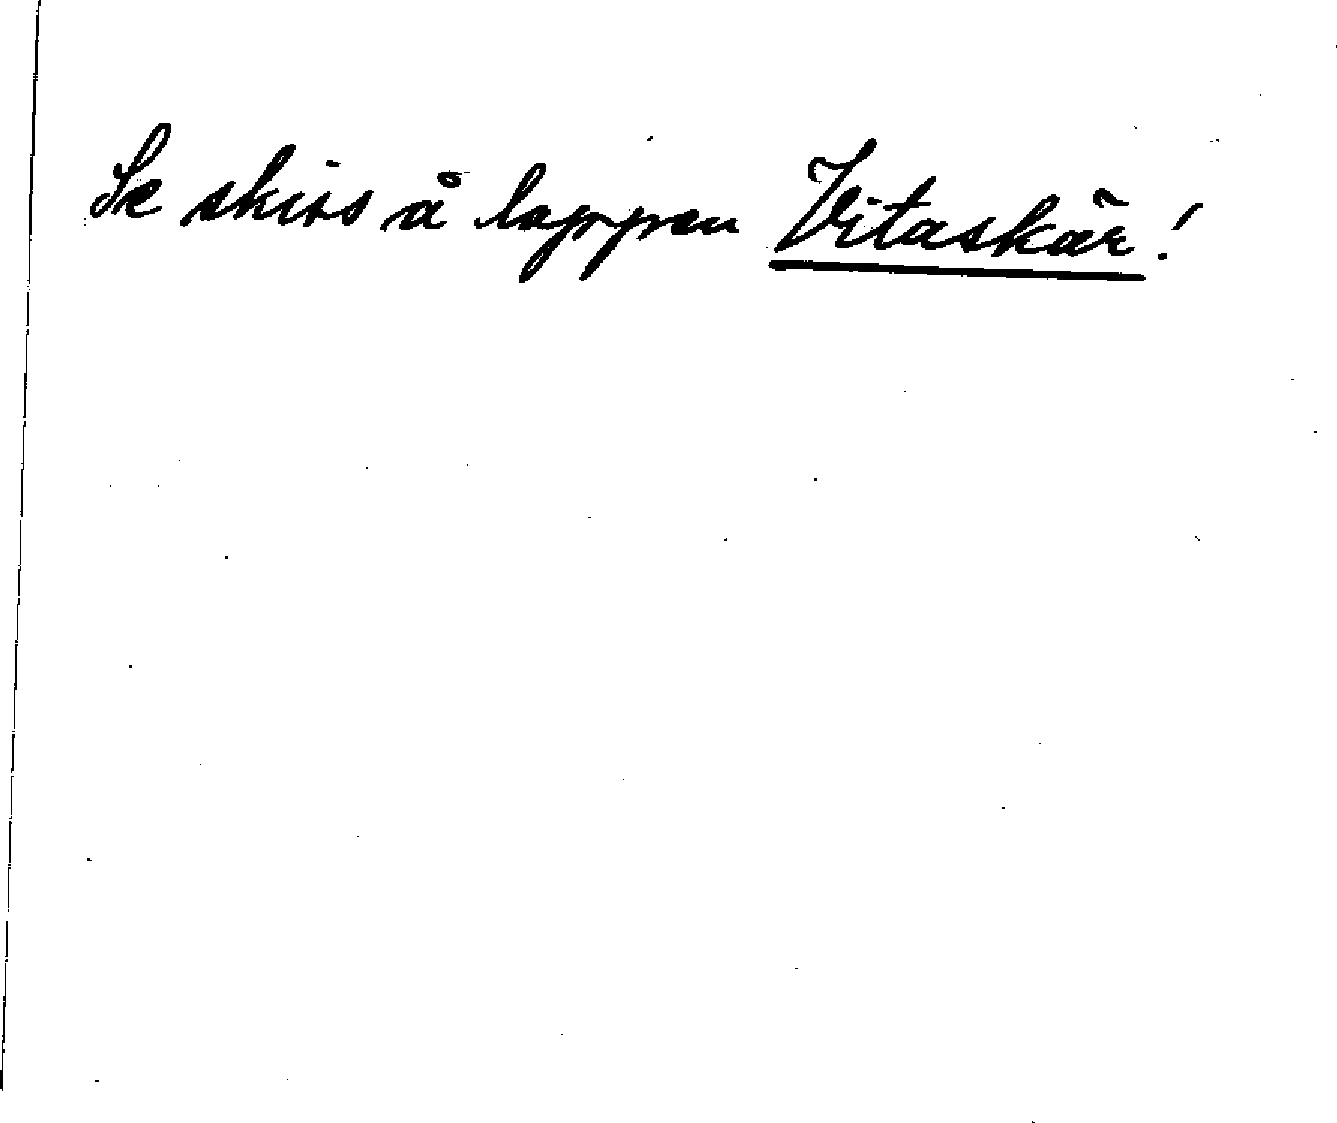 Se skiss å lappen Vitaskär!